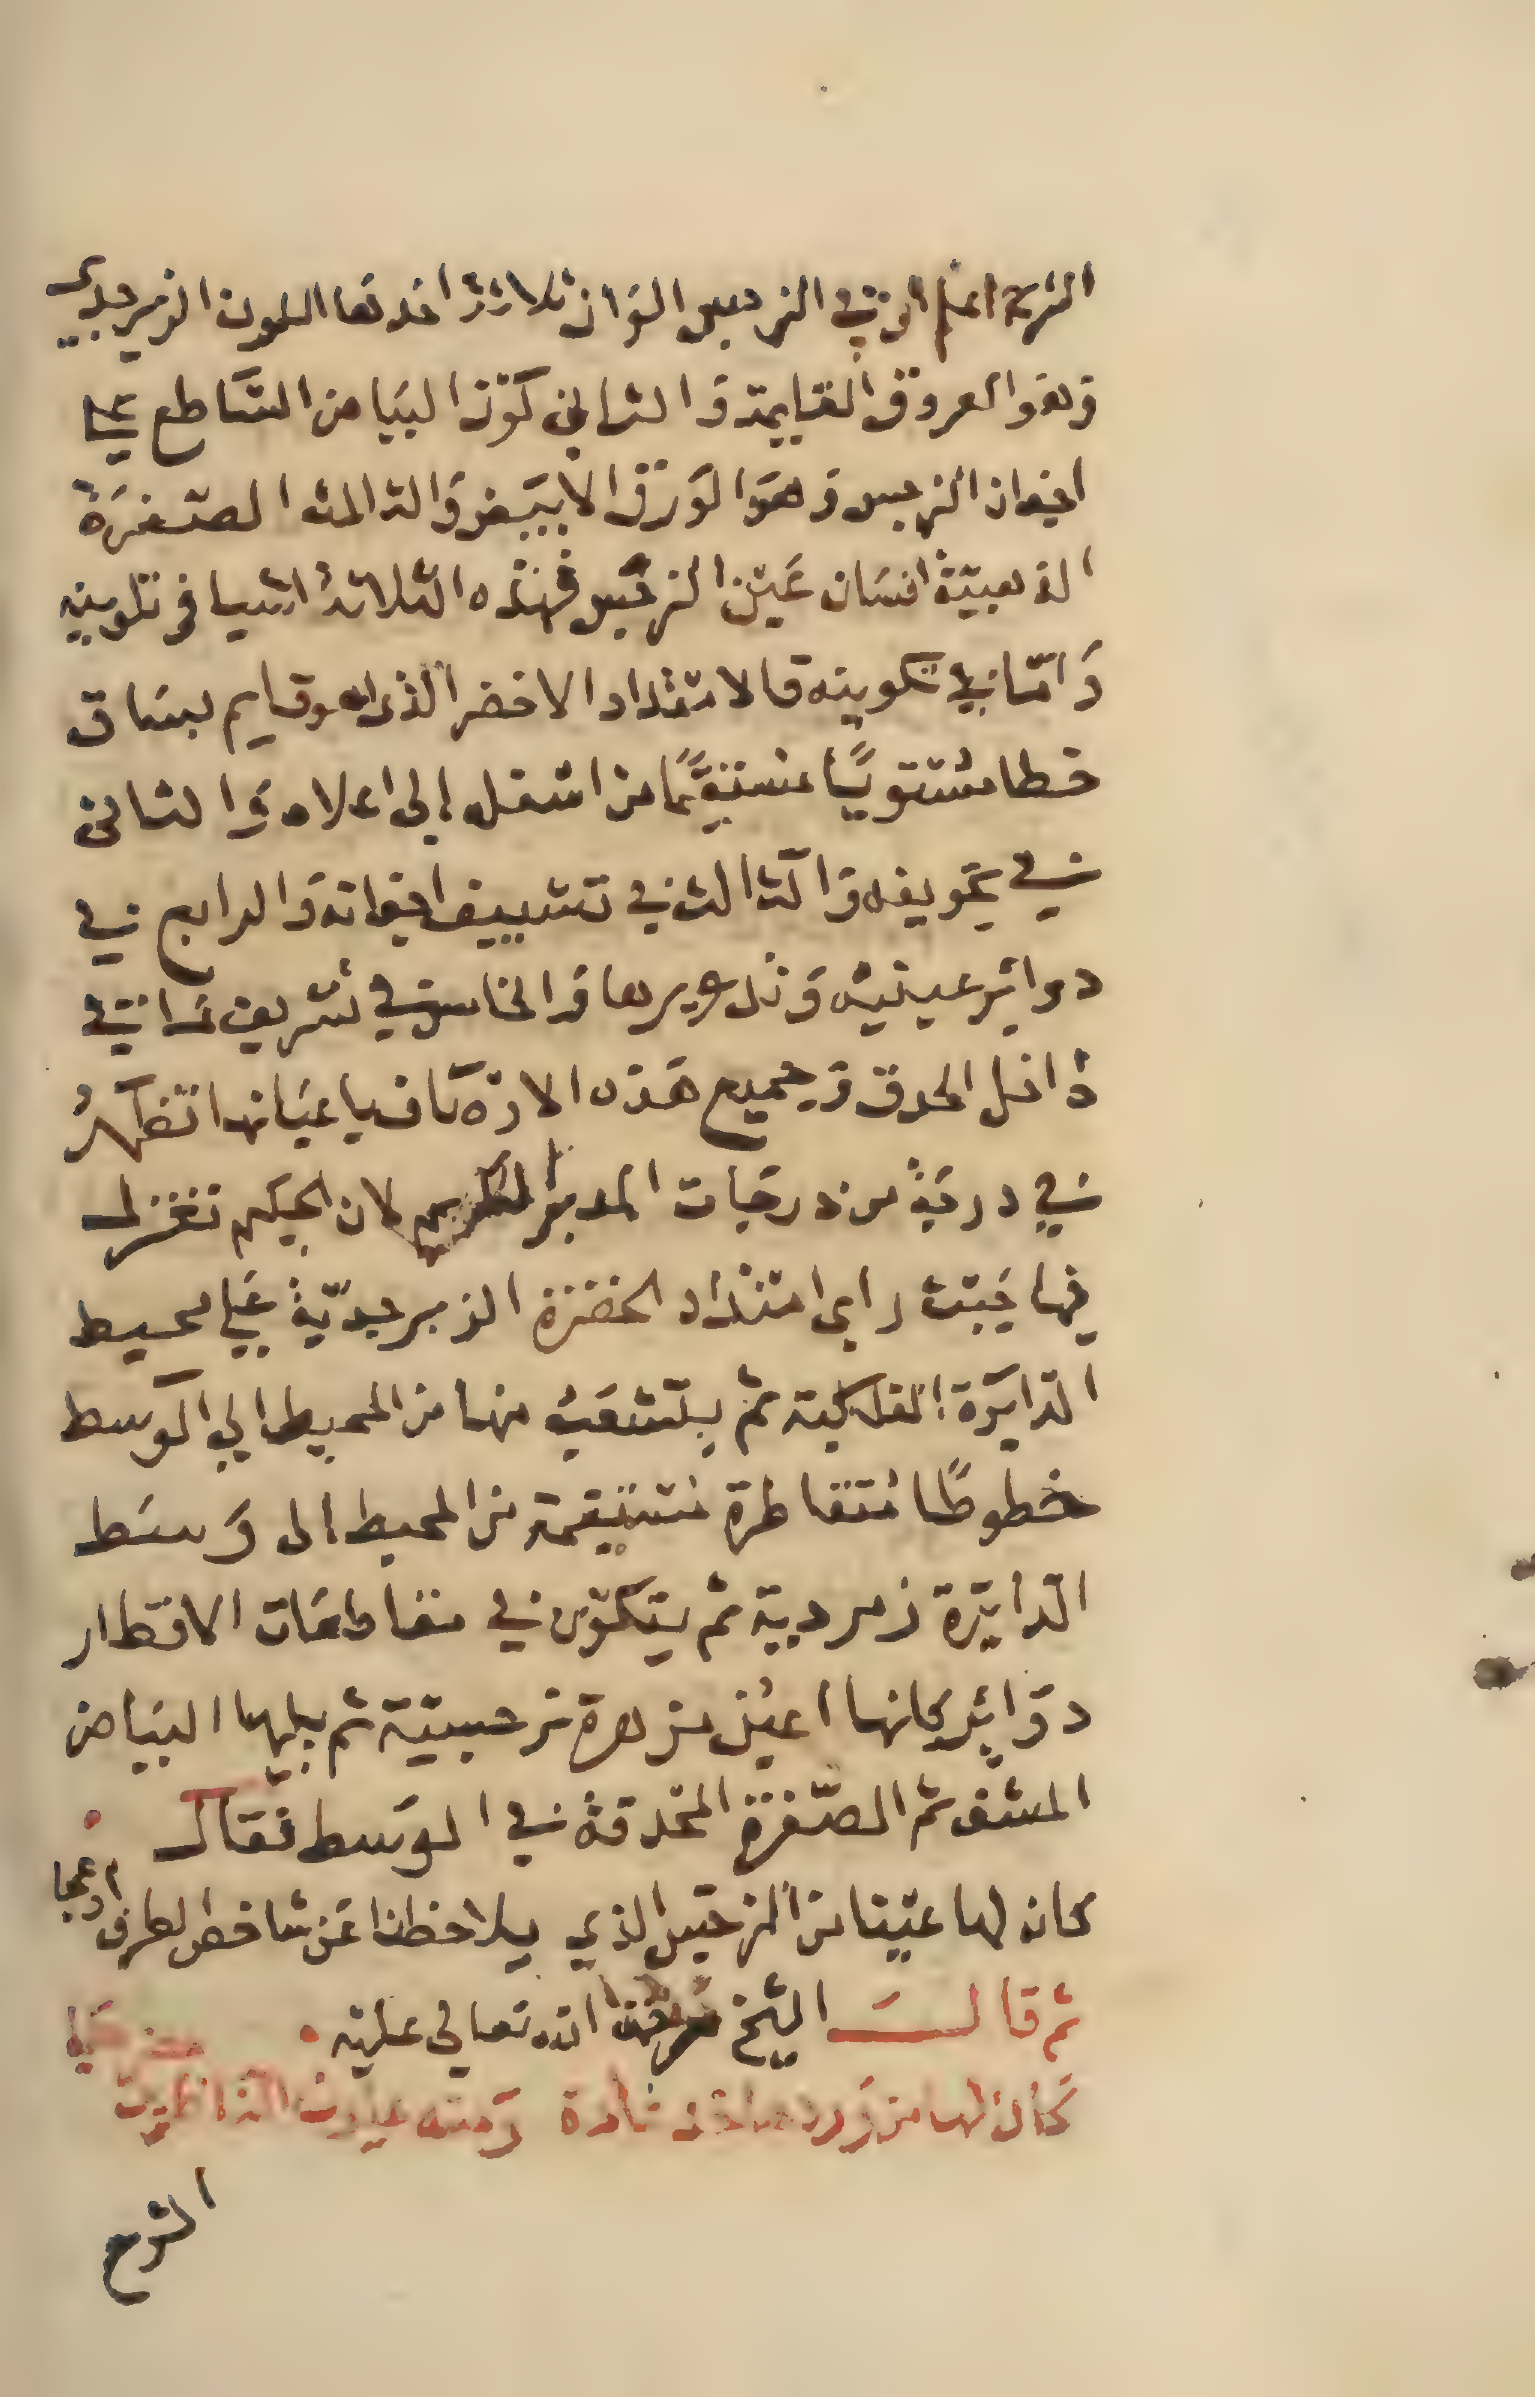 الشرح اعلم ان في النرجس الوان ثلاثة احدها اللون الزبرجدي
وهو العروق القايمة والثاني كون البياض الساطع على
اجفان النرجس وهو الورق الابيض والثالث الصفرة
الذهبية انسان عين النرجس فهذه الثلاثة اشيا في تلوينه
واما في تكوينه فالامتداد الاخضر الذي هو قايم بساق
خطا مستويًا مستقيمًا من اسفل إلى اعلاه والثاني
في تجويفه والثالث في تشييف اجفانه والرابع في
دواير عينيه وتدويرها والخامس في تشريف ما في
داخل الحدق وجميع هذه الاركان باعيانها تظهر
في درجة من درجات التدبير لان الحكيم تغزل
فيها حيث راى امتداد الخضرة الزبرجدية على محيط
الدايرة الفلكية ثم يتشعب منها من المحيط إلي الوسط
خطوطًا متقاطرة مستقيمة من المحيط إلى وسط
الدايرة زمردية ثم يتكون في مقاطعات الاقطار
دواير كانها اعين مزهرة نرجسية ثم يليها البياض
المشف ثم الصفرة المحدقة في الوسط فقال
كان لها عينا من النرجس الذي يلاحظنا عن شاخص الطرف ادعجا
ثم قال الشيخ الله تعالى عليه
كان لها من ورد
الشرح